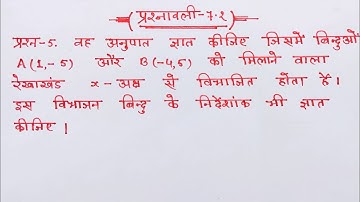 प्रश्नावली-7.2
प्रश्न-5. वह अनुपात ज्ञात कीजिए जिसमें बिन्दुओं
A (1,-5) और B(-4,5) को मिलाने वाला
रेखाखंड x-अक्ष से विभाजित होता है।
इस विभाजन बिन्दु के निर्देशांक भी ज्ञात
कीजिए।